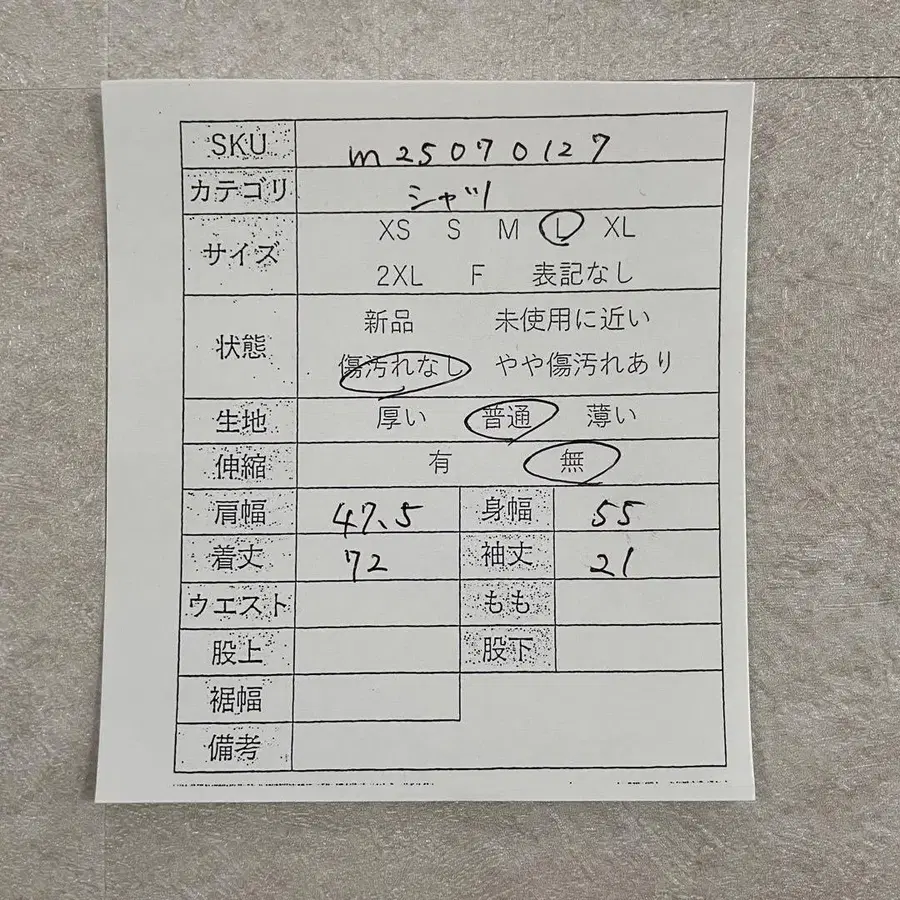 SKU m25070127
カテゴリ シャツ
サイズ XS S M L XL
2XL F 表記なし
状態 新品 未使用に近い
傷汚れなし やや傷汚れあり
生地 厚い 普通 薄い
伸縮 有 無
肩幅 47.5 身幅 55
着丈 72 袖丈 21
ウエスト もも
股上 股下
裾幅
備考